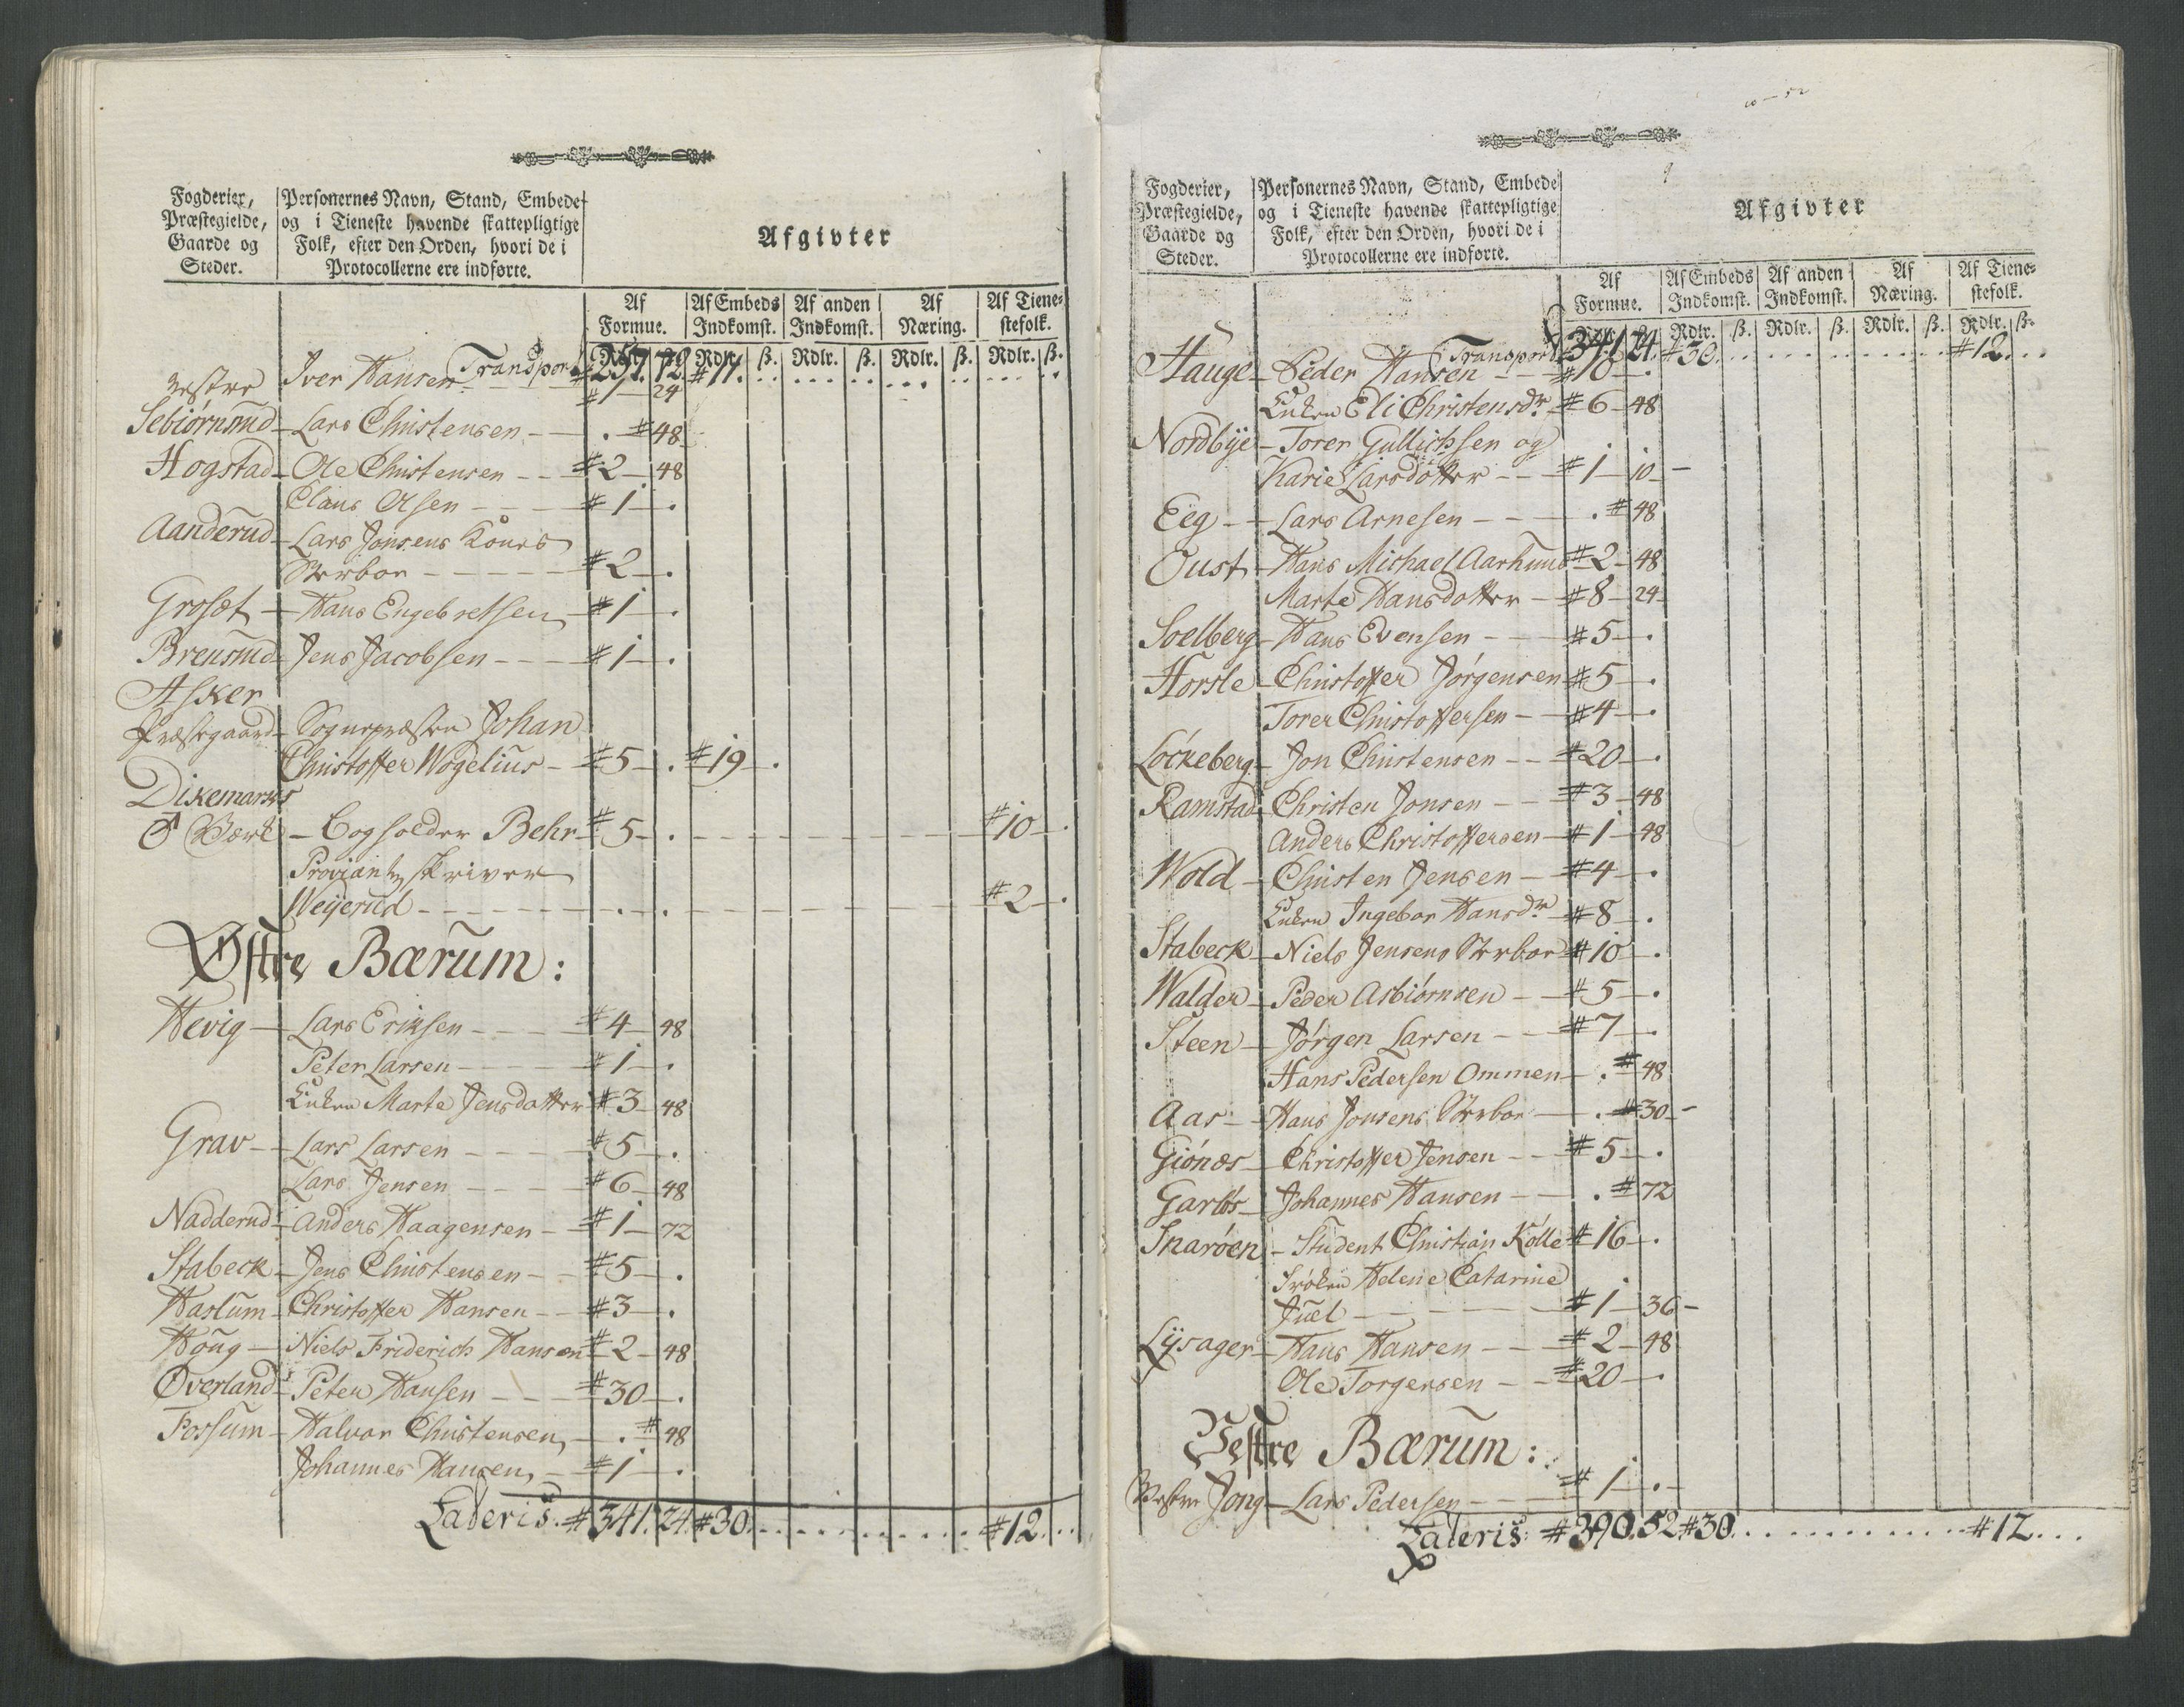 Fogderier,
Præstegielde,
Gaarde og
Steder.
Personernes Navn, Stand, Embede
og i Tieneste havende skattepligtige
Folk, efter den Orden, hvori de i
Protocollerne ere indførte.
Afgivter
Af Formue. Af Embeds Indkomst. Af anden Indkomst. Af Næring. Af Tienestefolk.
Rdlr. ß. Rdlr. ß. Rdlr. ß. Rdlr. ß.
Transport 257. 72 #11.
vestre Iver Hansen #1 - 24
Sebiørnsrud - Lars Christensen - . #48
Hogstad - Ole Christensen - #2 - 48
Claus Olsen - #1 - .
Aanderud - Lars Jonsens Kones
Sterboe - #2 - .
Groset - Hans Engebretsen #1 - .
Brensrud Jens Jacobsen - #1 - .
Asker
Præstegaard - Sognepræsten Johan
Christoffer Wogelius - #5 - . #19 - .
Dikemarks
Værk - Bogholder Behr #5 - . #10 - .
Proviantskriver
Weijerud - . . #2 - .
Østre Bærum:
Hevig - Lars Eriksen - #4 - 48
Peter Larsen - #1 - .
Enken Marte Jensdatter #3 - 48
Grav - Lars Larsen - #5 - .
Lars Jensen - #6 - 48
Nadderud - Anders Haagensen - #1 - 72
Stabeck - Jens Christensen - #5 - .
Haslum - Christoffer Hansen - #3 - .
Houg - Niels Friderich Hansen #2 - 48
Overland - Peter Hansen - #30 - .
Fossum - Halvor Christensen, - . #48
Johannes Hansen, - #1 - .
Lateris. #341. 24. #30. #12.
Fogderier,
Præstegielde,
Gaarde og
Steder.
Personernes Navn, Stand, Embede
og i Tieneste havende skattepligtige
Folk, efter den Orden, hvori de i
Protocollerne ere indførte.
Afgivter
Af Formue. Af Embeds Indkomst. Af anden Indkomst. Af Næring. Af Tienestefolk.
Rdlr. ß. Rdlr. ß. Rdlr. ß. Rdlr. ß.
Transport 341. 24. #30. #12.
Hauge - Peder Hansen - #10 - .
Enken Eli Christensdr #6 - 48
Nordbye - Torer Gullichsen og
Karie Larsdotter - #1 - 10 -
Eeg - Lars Arnesen - . #48
Oust - Hans Michael Aarhuus #2 - 48
Marte Hansdotter - #8 - 24
Soelberg - Hans Evensen - #5 - .
Horsle - Christoffer Jørgensen #5 - .
Torer Christoffersen - #4 - .
Løckeberg - Jon Christensen - #20 - .
Ramstad - Christen Jonsen - #3 - 48
Anders Christoffersen - #1 - 48
Wold - Christen Jensen - #4 - .
Enken Ingebor Hansdr #8 - .
Stabeck - Niels Jensens Sterboe #10 - .
Walder - Peder Asbiørnsen - #5 - .
Steen - Jørgen Larsen - #7 - .
Hans Pedersen Ommen - . #48
Aas - Hans Jonsens Sterboe - . #30 -
Giønæs - Christoffer Jensen - #5 - .
Garløs - Johannes Hansen - . #72
Snarøen - Student Christian Kølle #16 - .
Frøken Helene Catarine
Juel - #1 - 36 -
Lysager - Hans Hansen - #2 - 48
Ole Torgersen - #20 - .
Vestre Bærum:
Vestre Jong - Lars Pedersen - #1 . -
Lateris: #390. 52 #30. #12.